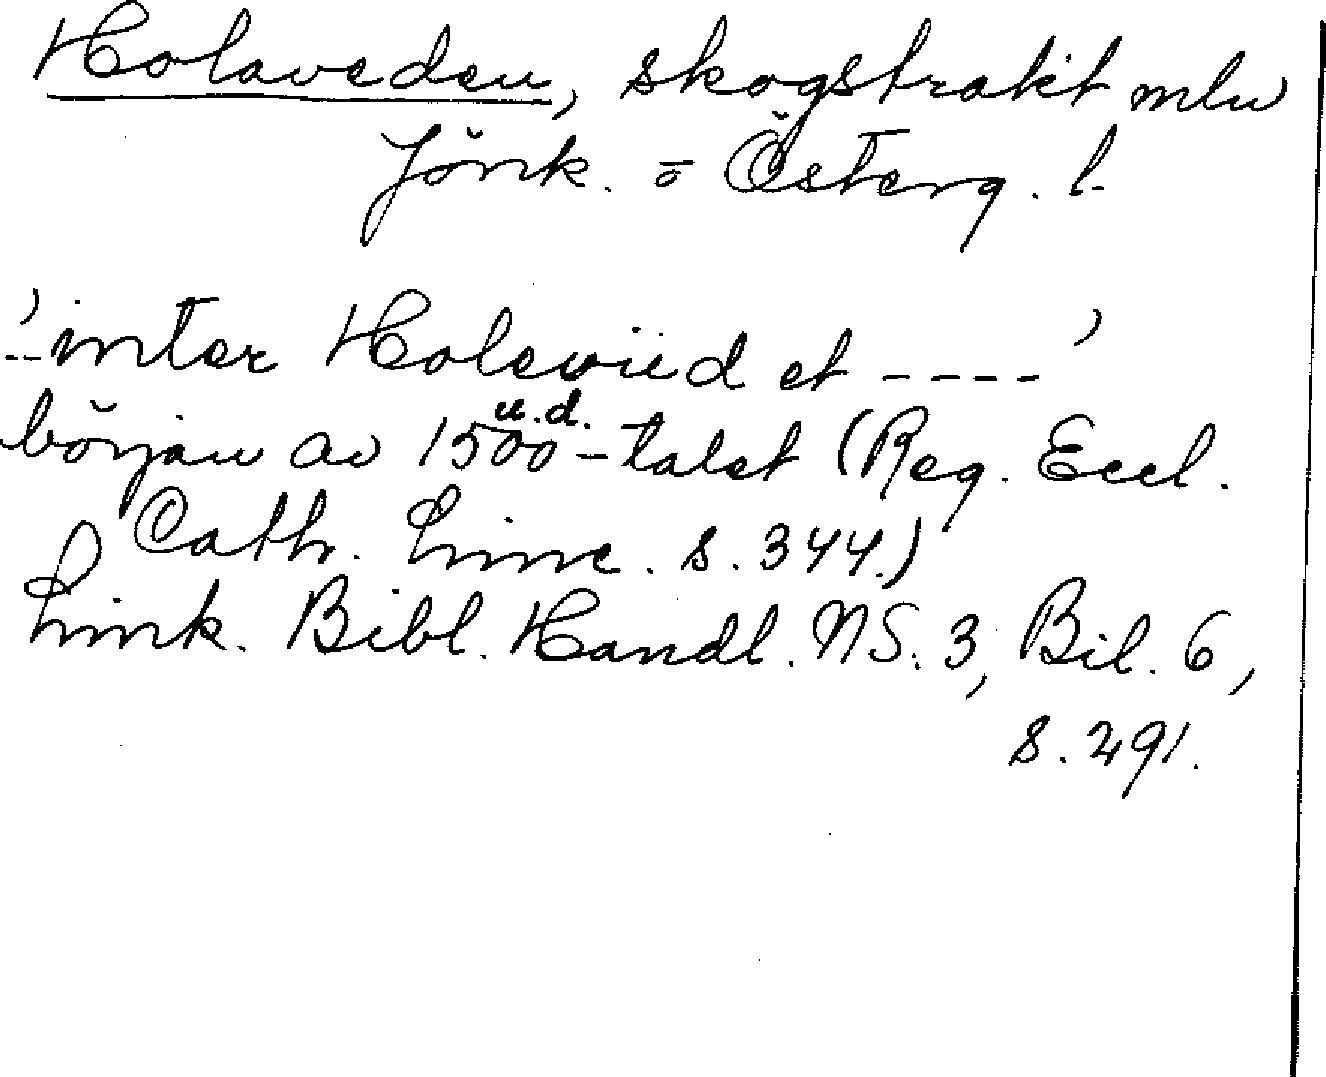 Holaveden, skogstrakt mln
Jönk. o Österg. l.
'--inter Holeviid et ----'
u.d.
början av 1500-talet (Reg. Eccl.
Cath. Linc. s. 344.)
Link. Bibl. Handl. NS. 3, Bil. 6,
s. 291.